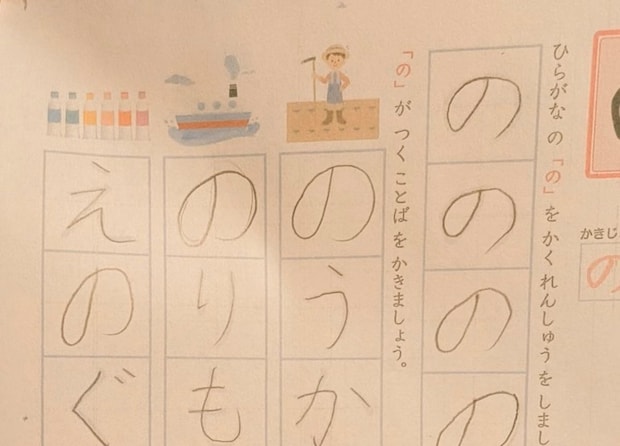 かきじ
の
ひらがな の 「の」 を かく れんしゅう を しまし
の
の
の
の
「の」 が つく ことば を かきましょう。
のうか
のりも
えのぐ